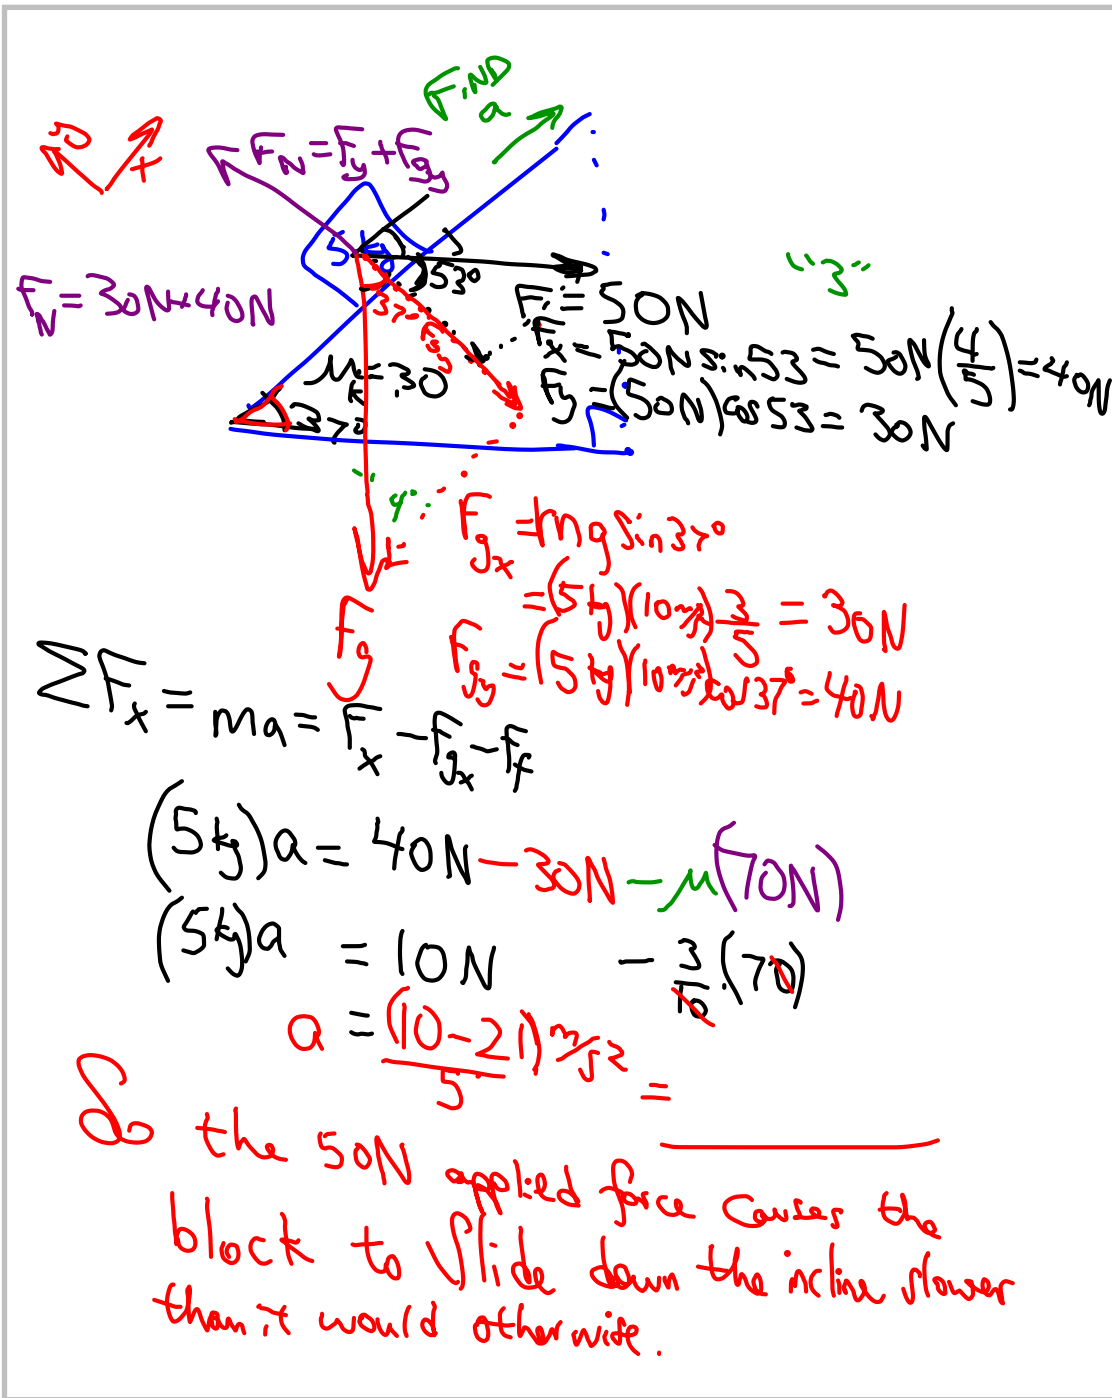 FIND
a
y
x
F_N = F_y + F_gy
5 kg
53°
"3"
F_N = 30N + 40N
37°
F_gy
F = 50N
F_x = 50N sin 53 = 50N (4/5) = 40N
μ_k = .30
F_y = (50N) cos 53 = 30N
37°
"4"
F_g
F_gx = mg sin 37°
= (5 kg)(10 m/s²) 3/5 = 30N
F_gy = (5 kg)(10 m/s²) cos 37° = 40N
ΣF_x = ma = F_x - F_gx - F_f
(5 kg)a = 40N - 30N - μ(70N)
(5 kg)a = 10N - 3/10 · (70)
a = (10-21)/5 m/s² =
So the 50N applied force causes the
block to slide down the incline slower
than it would otherwise.